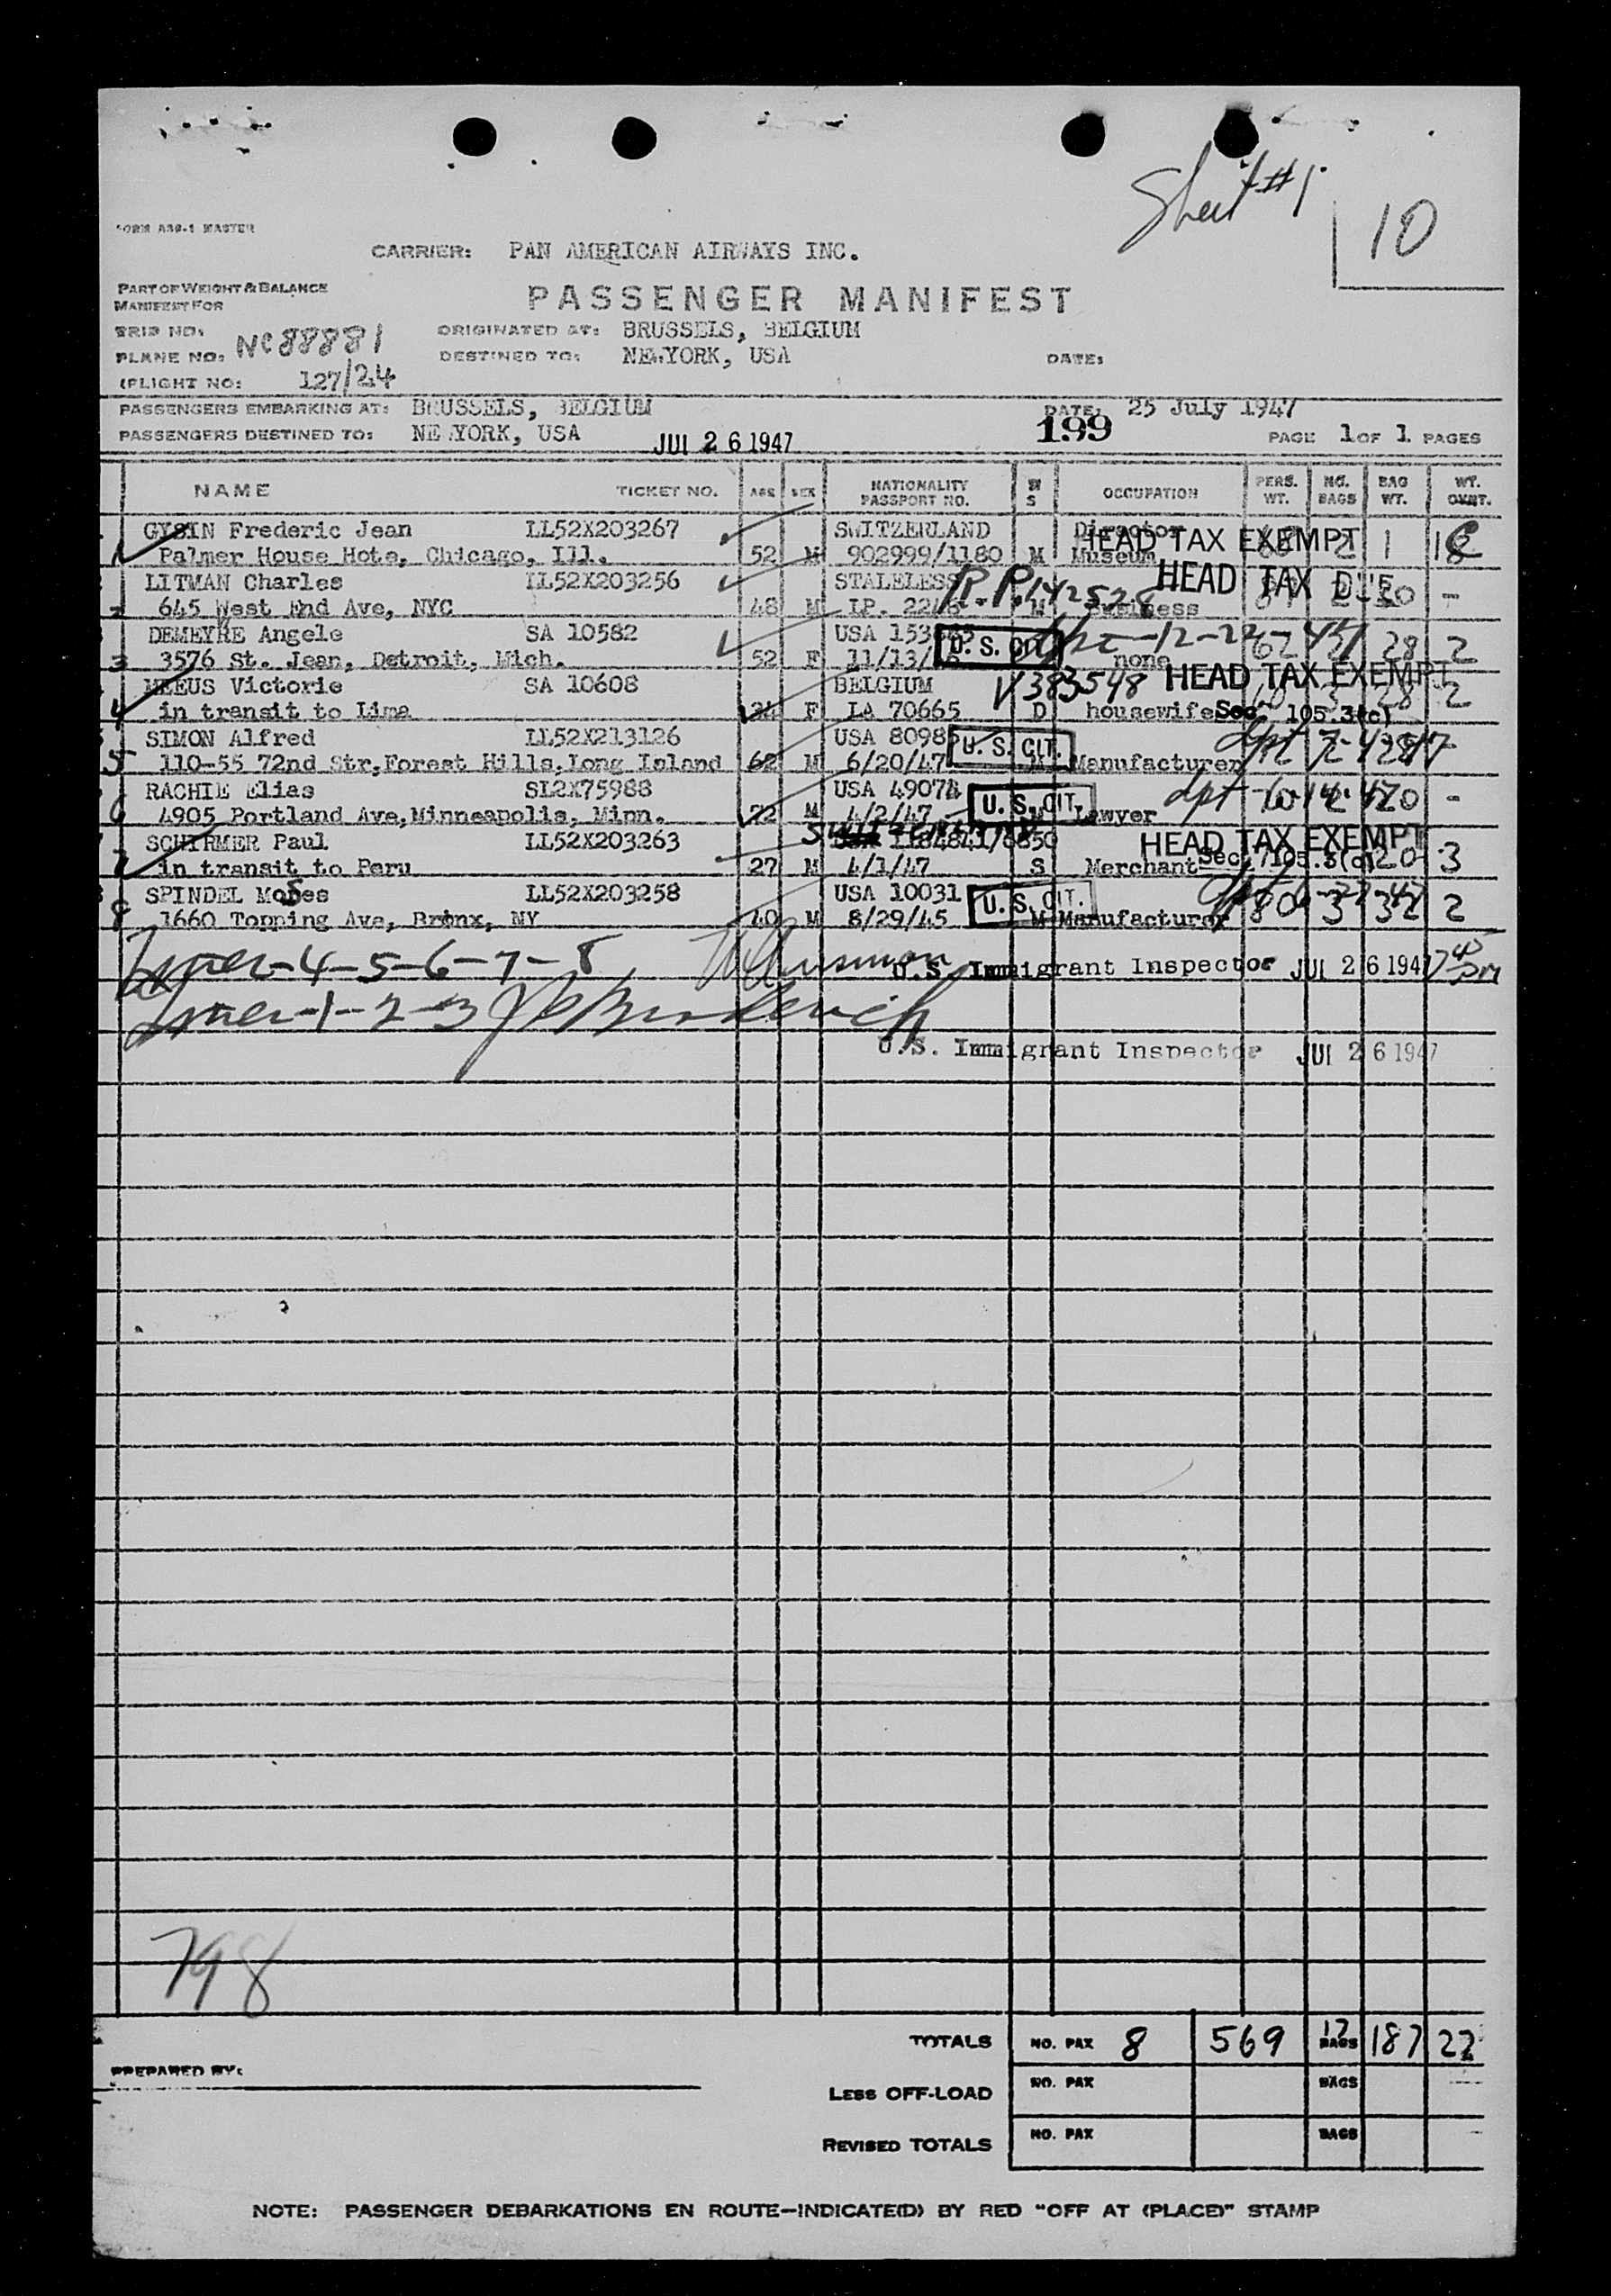 Sheet #1
10
FORM A38-1 MASTER
CARRIER: PAN AMERICAN AIRWAYS INC.
PART OF WEIGHT & BALANCE
MANIFEST FOR
PASSENGER MANIFEST
TRIP NO:
ORIGINATED AT: BRUSSELS, BELGIUM
PLANE NO: NC88881
DESTINED TO: NEW YORK, USA
DATE:
(FLIGHT NO: 127/24
PASSENGERS EMBARKING AT: BRUSSELS, BELGIUM
DATE: 25 July 1947
PASSENGERS DESTINED TO: NEW YORK, USA
JUL 26 1947
199
PAGE 1 OF 1 PAGES
NAME TICKET NO. AGE SEX NATIONALITY PASSPORT NO. M S OCCUPATION PERS. WT. NO. BAGS BAG WT. WT. OVRT.
GYSIN Frederic Jean LL52X203267 SWITZERLAND Director HEAD TAX EXEMPT
1 Palmer House Hote, Chicago, Ill. 52 M 902999/1180 M Museum 2 1 18
LITMAN Charles LL52X203256 STALELESS R.P. 142528 HEAD TAX DUE
2 645 West End Ave, NYC 48 M IP. M Business -
DEMEYRE Angele SA 10582 USA U.S. CIT.
3 3576 St. Jean, Detroit, Mich. 52 F 11/13/ none 62 28 2
MEEUS Victorie SA 10608 BELGIUM V 383548 HEAD TAX EXEMPT
4 in transit to Lima F LA 70665 D housewife Sec. 105.3(c) 3 28 2
SIMON Alfred LL52X213126 USA U.S. CIT.
5 110-55 72nd Str, Forest Hills, Long Island 62 M 6/20/47 Manufacturer
RACHIE Elias SL2X75988 USA U.S. CIT. dpt
6 4905 Portland Ave, Minneapolis, Minn. 72 M 4/2/47 Lawyer -
SCHIRMER Paul LL52X203263 Switzerland HEAD TAX EXEMPT
7 in transit to Peru 27 M 4/1/47 S Merchant Sec. 105.3(c) 20 3
SPINDEL Moses LL52X203258 USA 10031 U.S. CIT.
8 1660 Topping Ave, Bronx, NY 40 M 8/29/45 M Manufacturer 80 3 32 2
4-5-6-7-8 U.S. Immigrant Inspector JUL 26 1947
1-2-3
U.S. Immigrant Inspector JUL 26 1947
798
TOTALS NO. PAX 8 569 17 BAGS 187 22
PREPARED BY:
LESS OFF-LOAD NO. PAX BAGS
REVISED TOTALS NO. PAX BAGS
NOTE: PASSENGER DEBARKATIONS EN ROUTE—INDICATE(D) BY RED "OFF AT (PLACE)" STAMP